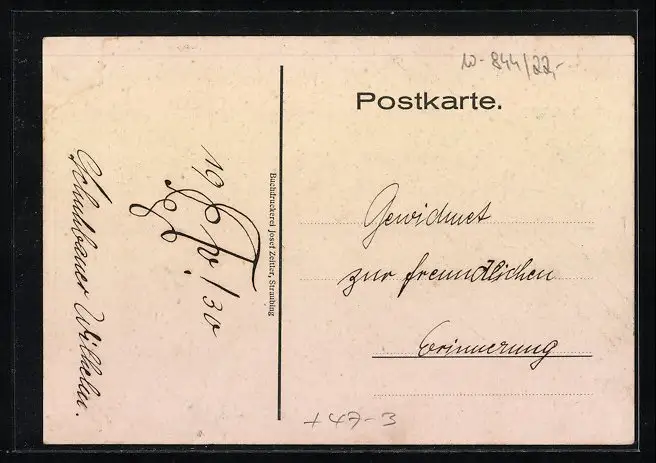 10-844/22,-
Postkarte.
Gewidmet
zur freundlichen
Erinnerung
+47-3
Buchdruckerei Josef Zeitler, Straubing
19 /30
Wilhelm.